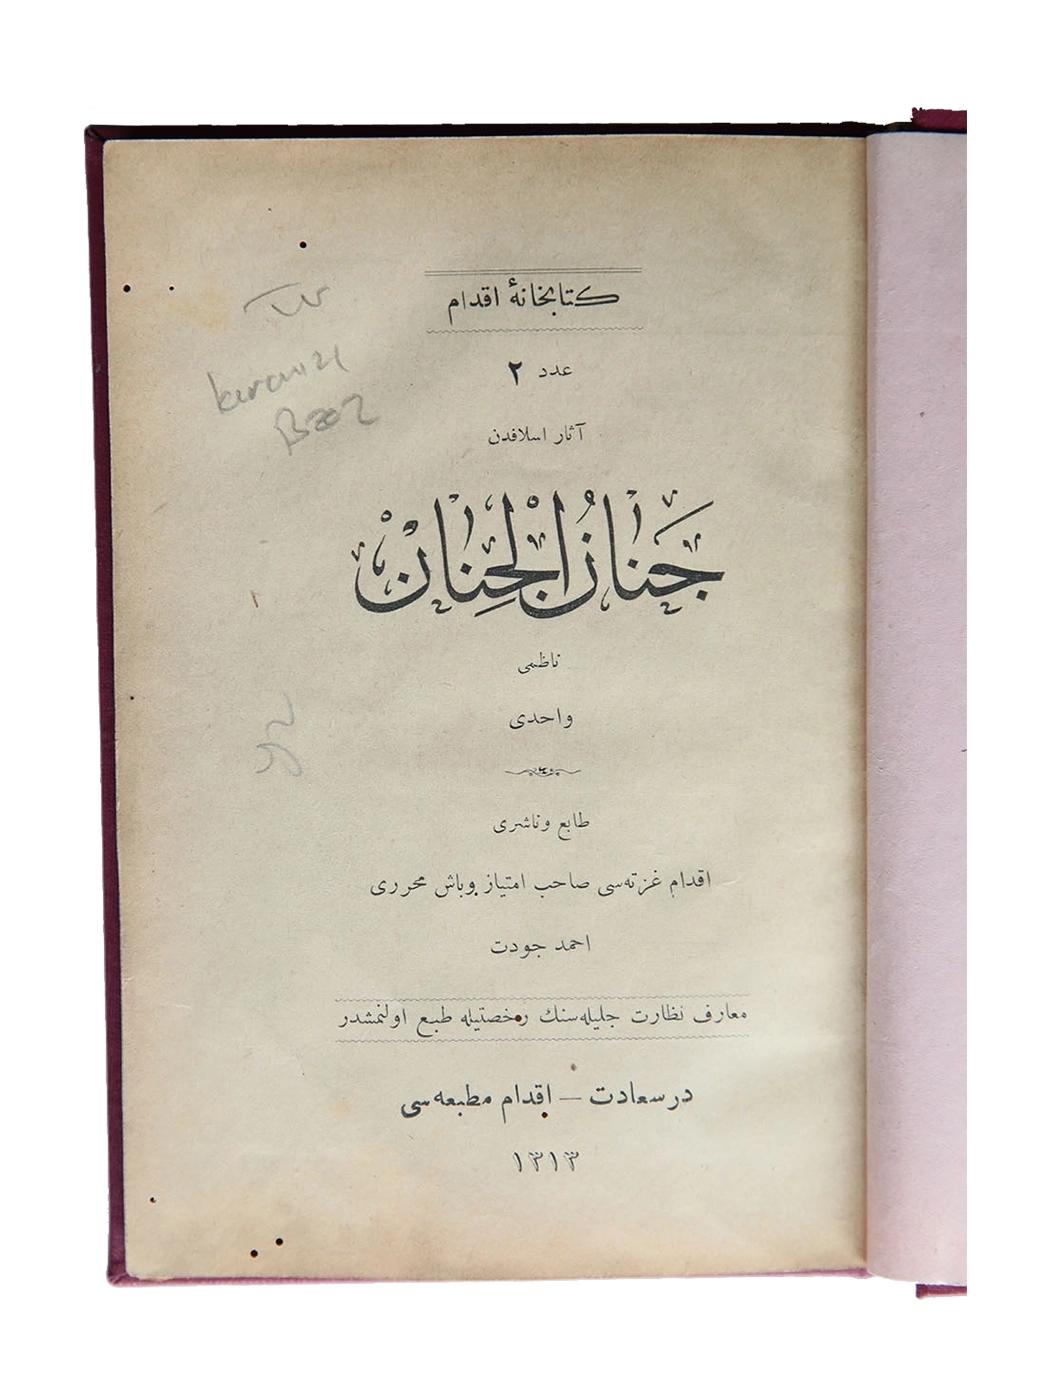 كتابخانهٔ اقدام
عدد ٢
آثار اسلافدن
جَنانُ الْجِنان
ناظمى
واحدى
طابع وناشرى
اقدام غزته‌سى صاحب امتياز وباش محررى
احمد جودت
معارف نظارت جليله‌سنك رخصتيله طبع اولنمشدر
درسعادت — اقدام مطبعه‌سى
١٣١٣